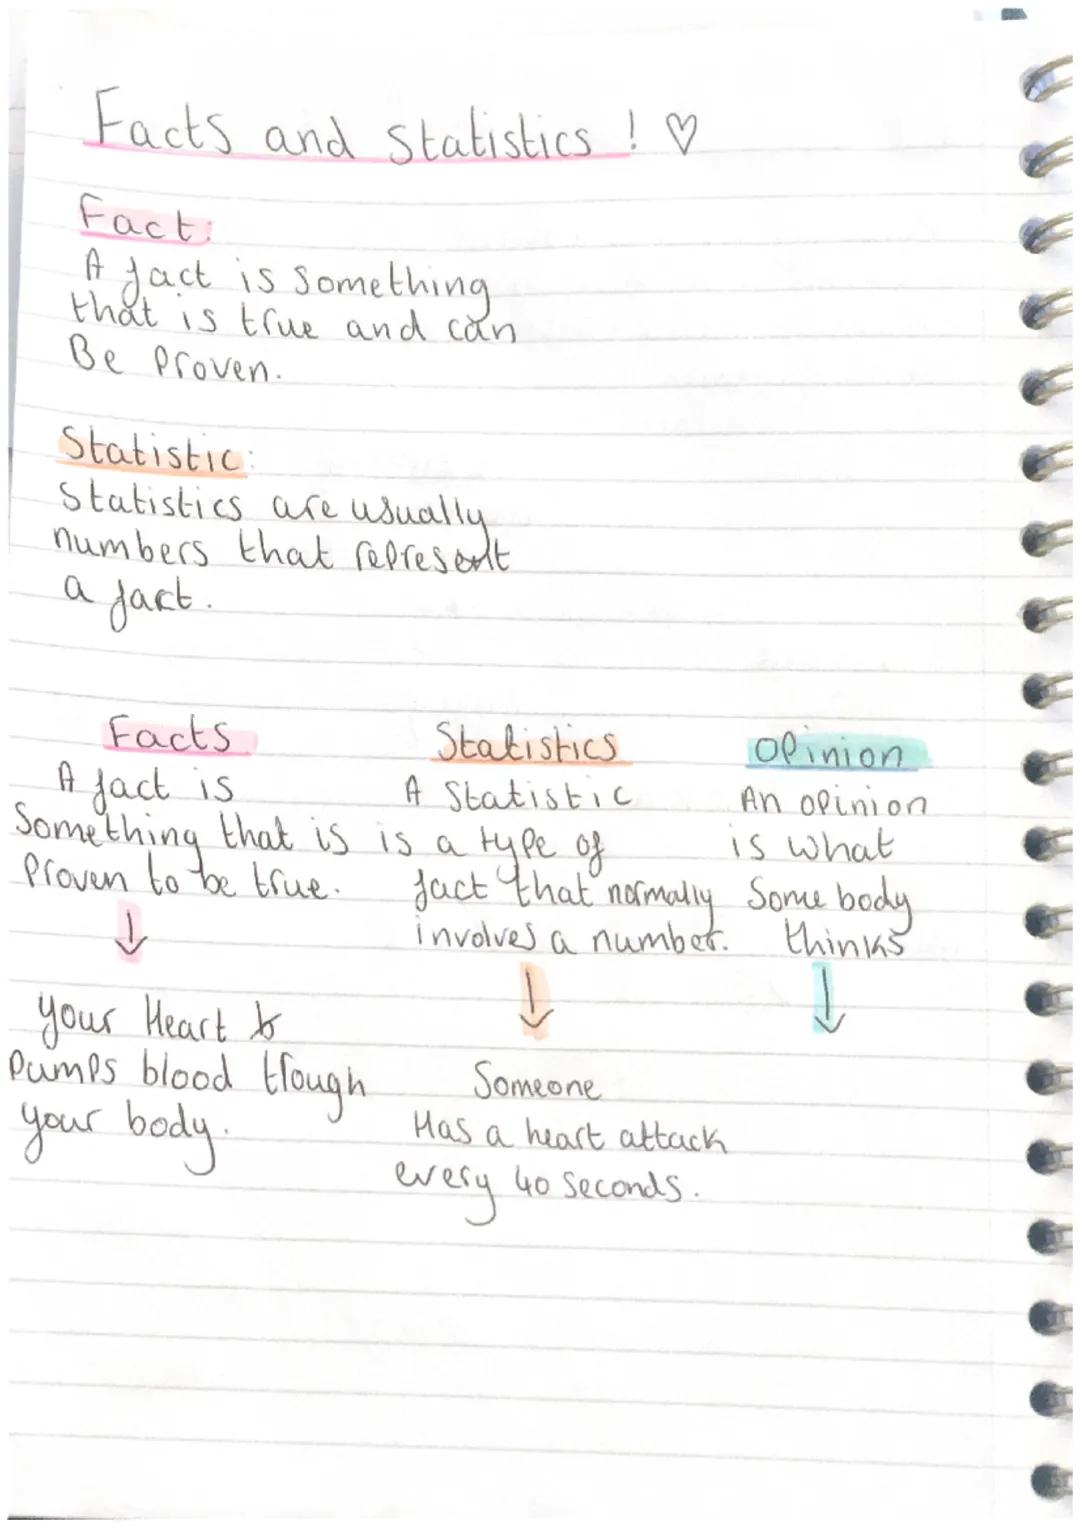 Facts and statistics ! ♡
Fact:
A fact is something
that is true and can
Be Proven.
Statistic:
Statistics are usually
numbers that represent
a fact.
Facts
A fact is
Something that is
Proven to be true.
↓
your Heart
Pumps blood trough
your body.
Statistics
A Statistic
is a type of
fact that normally
involves a number.
↓
Someone
Has a heart attack
every 40 Seconds.
Opinion
An opinion
is what
Some body
thinks
↓